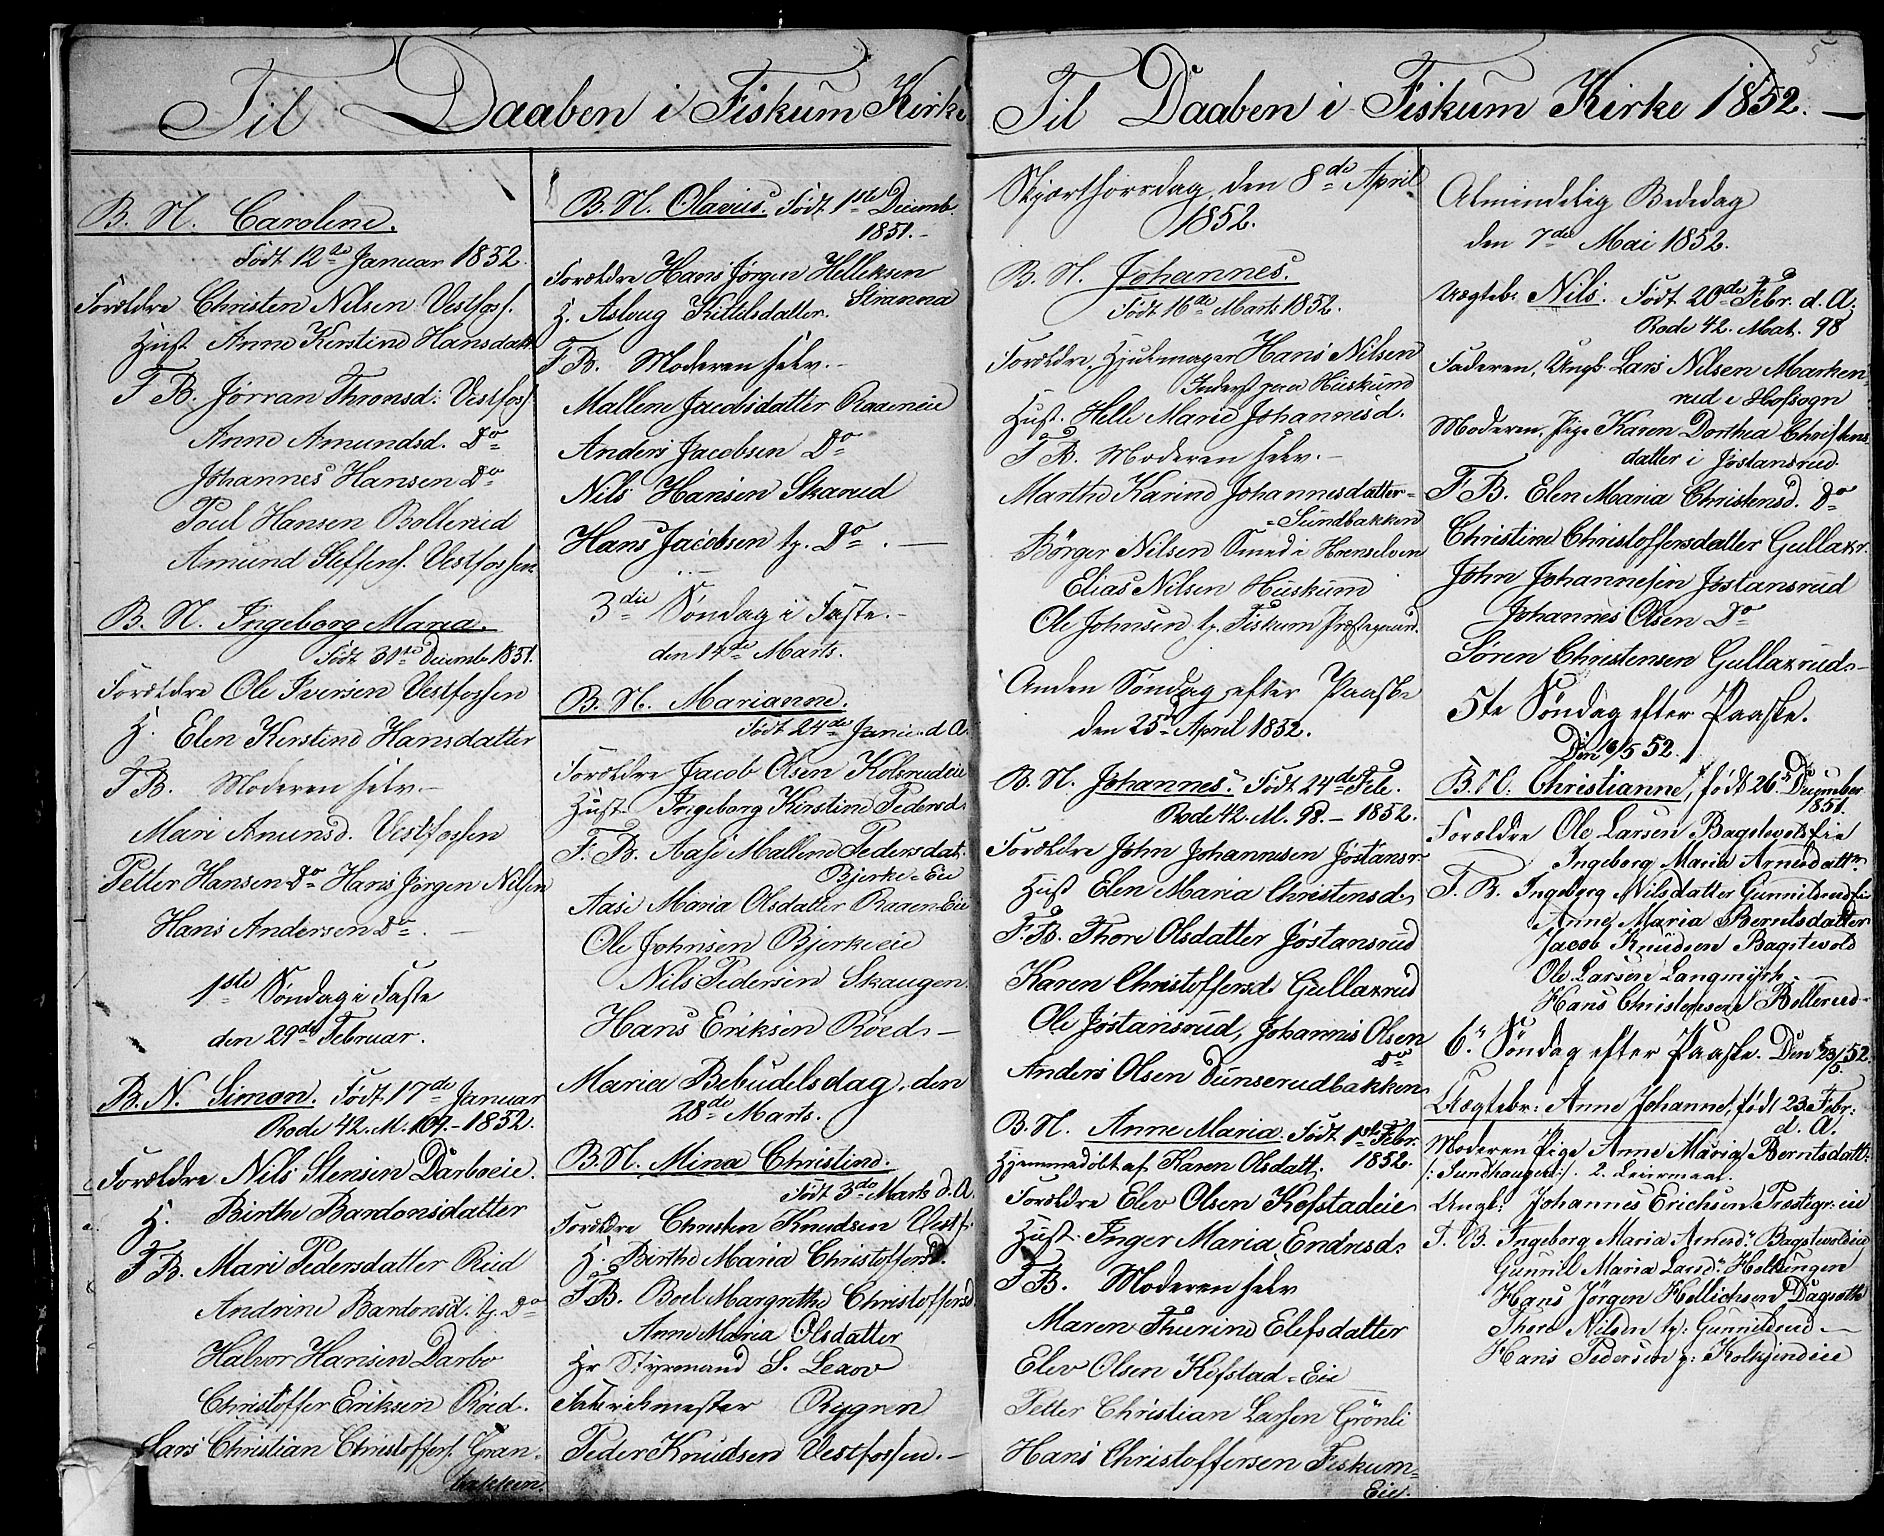 Til Daaben i Fiskum Kirke
B. N. Caroline.
Født 12te Januar 1852.
Forældre Christen Nilsen Vestfosf.
Hust. Anne Kerstine Hansdatt.
F. B. Jørran Thronsd: Vestfosf
Anne Amundsd. Do
Johannes Hansen Do
Poul Hansen Bollerud
Amund Steffens. Vestfossen
B. N. Ingeborg Maria.
Født 31te Decemb 1851.
Forældre Ole Iversen Vestfossen
H. Elen Kerstine Hansdatter
F. B. Moderen selv.-
Mari Amunsd. Vestfossen
Petter Hansen Do Hans Jørgen Nilsen
Hans Andersen Do. -
1ste Søndag i Faste
den 29de Februar.
B. N. Simon. Født 17de Januar
Rode 42. M. 107.- 1852.
Forældre Nils Stensen Darboeie.
H. Birthe Bardonsdatter
F. B. Mari Pedersdatter Røed
Andrine Bardonsd. tp. Do
Halvor Hansen Darbo
Christoffer Eriksen Røed.
Lars Christian Christoffers. Gran-
bakken.
B. N. Olavus. Født 1ste Decemb.
1851.-
Forældre Hans Jørgen Helleksen
Stranna
H. Asloug Kittelsdatter.
F. B. Moderen selv.-
Mallene Jacobsdatter Raaeneie
Anders Jacobsen Do
Nils Hansen Skarud
Hans Jacobsen tp. Do. -
3die Søndag i Faste.-
den 14de Marts.
B. N. Marianne.
Født 24de Janu. d. A.
Forældre Jacob Olsen Kolsrudeie
Hust. Ingeborg Kirstine Pedersd.
F. B. Aase Mallene Pedersdat.
Bjerke-Eie
Aase Maria Olsdatter Raaen-Eie
Ole Johnsen Bjerkeeie
Nils Pedersen Skaugen
Hans Eriksen Røed.-
Maria Bebudelsdag, den
28de Marts.
B. N. Mina Christine.
Født 3de Marts d. A.
Forældre Christen Knudsen Vestf.
H. Birthe Maria Christoffersd.
F. B. Boel Margrethe Christoffersd
Anne Maria Olsdatter
Hr Styrmand S. Leaov
Fabrikmester Rygren
Peder Knudsen Vestfossen.-
5
Til Daaben i Fiskum Kirke 1852.-
Skjærthorsdag den 8de April
1852.
B. N. Johannes.
Født 16de Marts 1852.
Forældre, Hjulmager Hans Nilsen
Inderst paa Huskund
Hust. Helle Marie Johannesd.
F. B. Moderen selv.-
Marthe Karine Johannesdatter-
-Sundbakken
Börger Nilsen Smed i Krenselven
Elias Nilsen Huskund
Ole Johnsen tp. Fiskum Præstegaard.
Anden Søndag efter Paaske
den 25d April 1852.
B. N. Johannes. Født 24de Feb.
Rode 42. M. 98.- 1852.
Forældre John Johannesen Jøstansr.
Hust Elen Maria Christensd.
F. B. Thore Olsdatter Jøstansrud
Karen Christoffersd. Gullaxrud
Ole Jøstansrud, Johannes Olsen
Do
Anders Olsen Dunserudbakken
B. N. Anne Maria. Født 1ste Febr.
Hjemmedøbt af Karen Olsdatt. 1852.
Forældre Elev Olsen Kofstadeie
Hust. Inger Maria Endresd.
F. B. Moderen selv
Maren Thurine Elefsdatter
Elev Olsen Kofstad-Eie
Petter Christian Larsen Grönli
Hans Christoffersen Fiskum-
Eie.
Almindelig Bededag
den 7de Mai 1852.
Uægteb. Nils. Født 20de Febr. d. A.
Rode 42. Mat. 98
Faderen, Ungk. Lars Nilsen Marken-
rud i Hofsogn
Moderen, Pige Karen Dorthea Christens-
datter i Jøstansrud.
F. B. Elen Maria Christensd. Do
Christine Christoffersdatter Gullaxr.
John Johannesen Jøstansrud
Johannes Olsen Do
Søren Christensen Gullaxrud.-
5te Søndag efter Paaske.
Den 16/5 52.
B. N. Christianne, født 26. December
1851.
Forældre Ole Larsen Bagstevolds Eie
Ingeborg Maria Arnesdattr.
F. B. Ingeborg Nilsdatter Gunnildrudseie
Anne Maria Berntsdatter
Jacob Knudsen Bagstevold
Ole Larsen Langmyrh.
Hans Christensen Bollerud-
6. Søndag efter Paaske. Den 23/5 52
Uægtebr: Anne Johanne, født 23. Febr:
d. A.
Moderen Pige Anne Maria Berntsdatt:
/: Sundhaugen:/. 2. Leiermaal.
Ungk. Johannes Erichsen Præstegr: eie
F. B. Ingeborg Maria Arnesd: Bagstevoldeie
Gunnild Maria Larsd: Holtungen
Hans Jörgen Hellichsen Dagsoth
Thore Nilsen tp: Gunnildrud -
Hans Pedersen p: Kolsrudeie